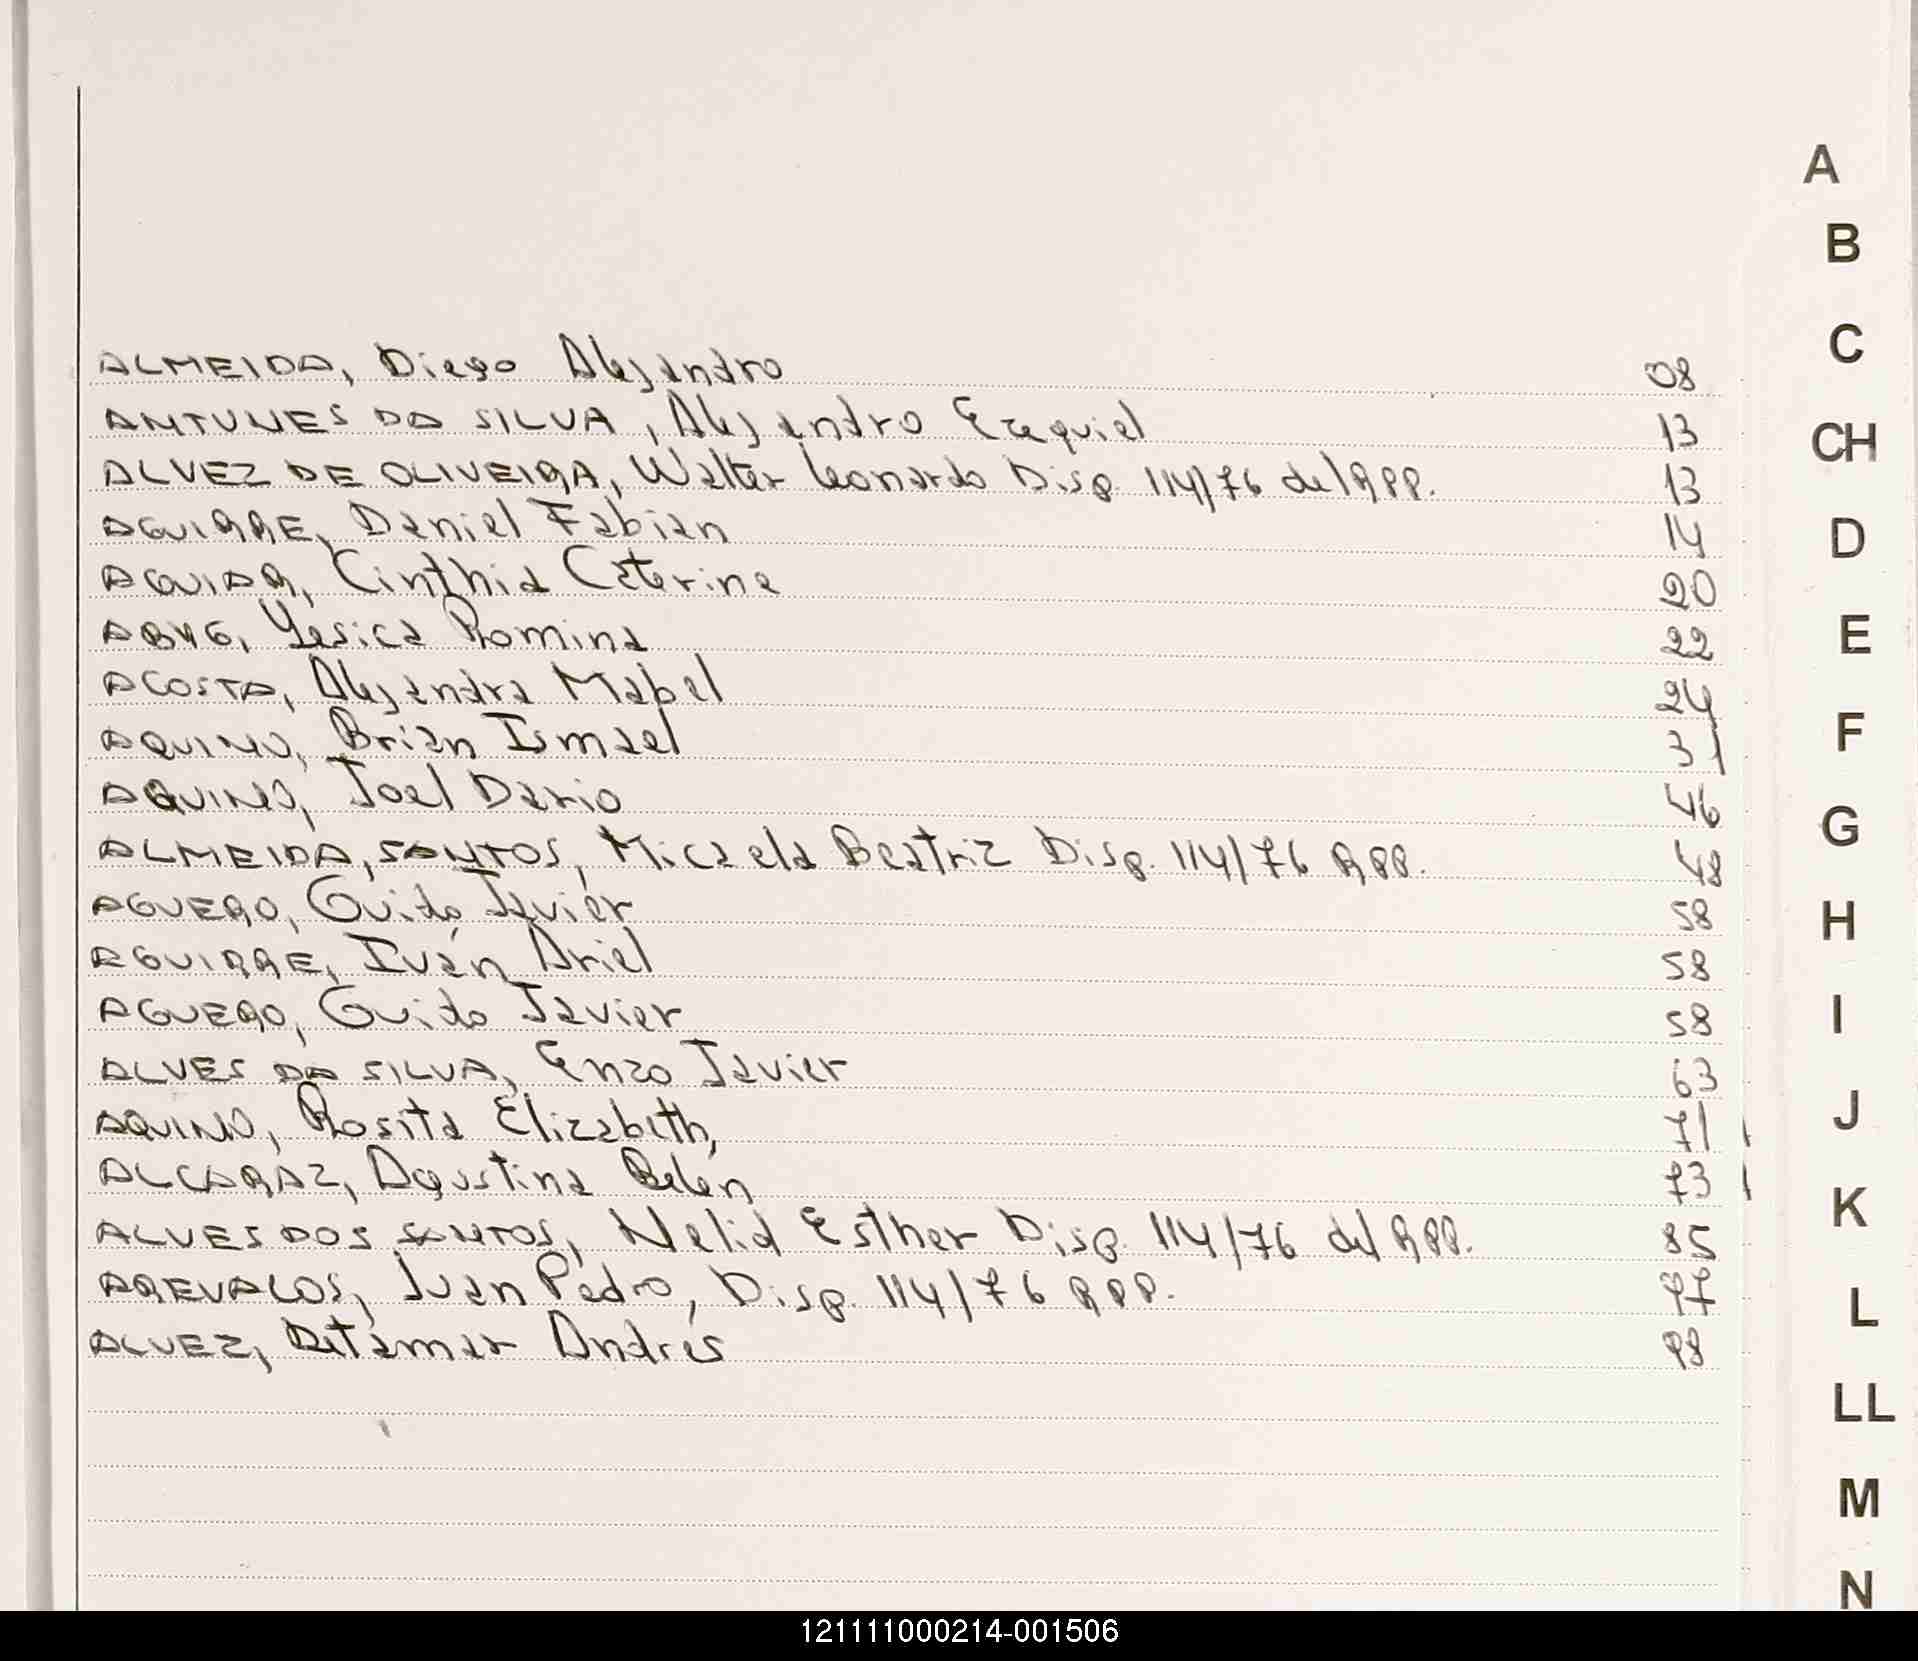 ALMEIDA, Diego Alejandro 08
ANTUNES DA SILVA, Alejandro Ezequiel 13
ALVEZ DE OLIVEIRA, Walter Leonardo Disp. 114/76 del RPP. 13
AGUIRRE, Daniel Fabian 14
AGUIAR, Cinthia Caterine 20
Yesica Romina 22
ACOSTA, Alejandra Mabel 24
AQUINO, Brian Ismael 31
AQUINO, Joel Dario 46
ALMEIDA, SANTOS, Micaela Beatriz Disp. 114/76 RPP. 48
AGUERO, Guido Javier 58
AGUIRRE, Iván Ariel 58
AGUERO, Guido Javier 58
ALVES DA SILVA, Enzo Javier 63
AQUINO, Rosita Elizabeth, 71
ALCARAZ, Agustina Belén 73
ALVES DOS SANTOS, Nelid Esther Disp. 114/76 del RPP. 85
AREVALOS, Juan Pedro, Disp. 114/76 RPP. 97
ALVEZ, Andrés 98
A
B
C
CH
D
E
F
G
H
I
J
K
L
LL
M
N
121111000214-001506